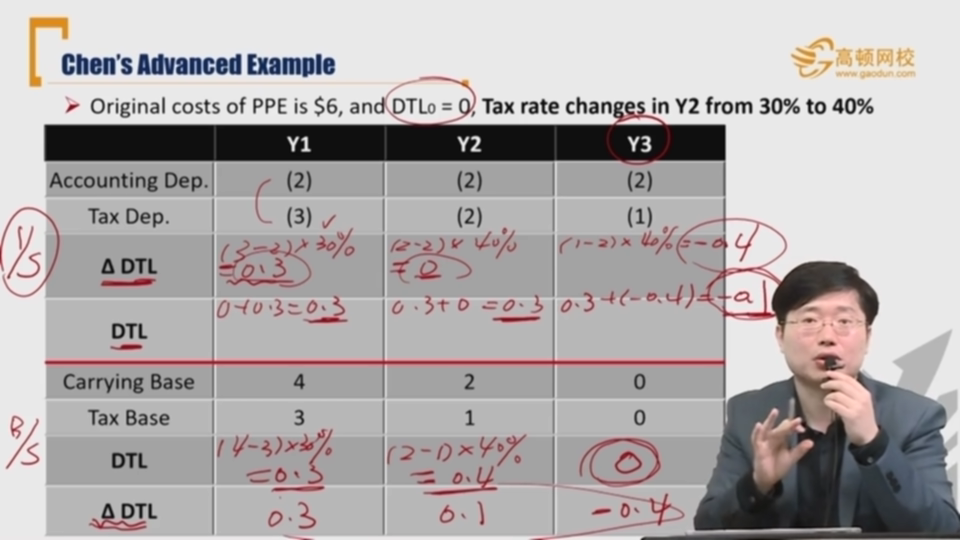 Chen's Advanced Example
高顿网校
www.gaodun.com
➤ Original costs of PPE is $6, and DTL₀ = 0, Tax rate changes in Y2 from 30% to 40%
Y1 Y2 Y3
Accounting Dep. (2) (2) (2)
Tax Dep. (3) (2) (1)
I/S
Δ DTL (3-2)×30% =0.3 (2-2)×40% =0 (1-2)×40%=-0.4
DTL 0+0.3=0.3 0.3+0=0.3 0.3+(-0.4)=-0.1
Carrying Base 4 2 0
Tax Base 3 1 0
B/S
DTL (4-3)×30% =0.3 (2-1)×40% =0.4 0
Δ DTL 0.3 0.1 -0.4